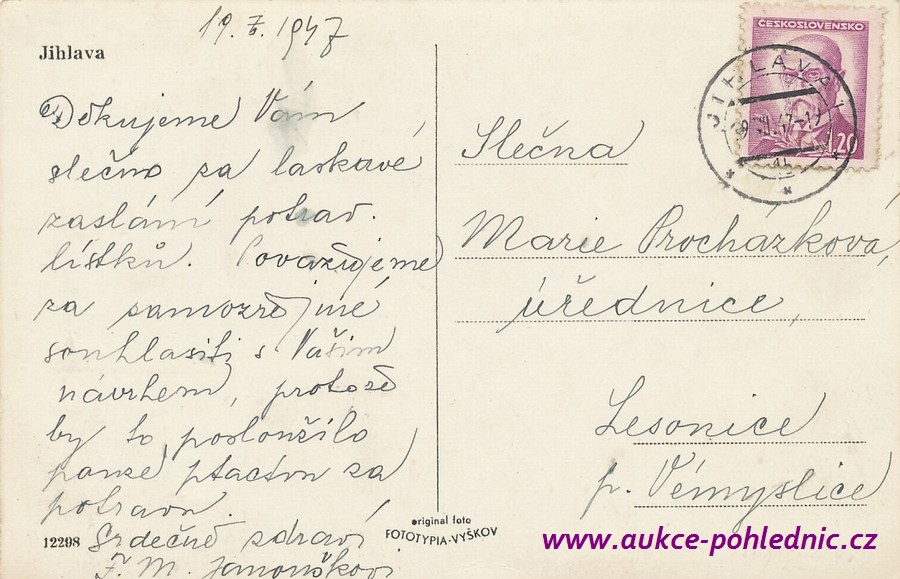 19. 7. 1947
Jihlava
Děkujeme Vám
slečno za laskavé
zaslání potrav.
lístků. Považujeme
za samozřejmé
souhlasiti s Vašim
návrhem, protože
by to posloužilo
pouze ptactvu za
potravu.
Srdečně zdraví
F. M.
12298
original foto
FOTOTYPIA-VYŠKOV
ČESKOSLOVENSKO
1.20
JIHLAVA 1
Slečna
Marie Procházková,
úřednice,
Lesonice
p. Vémyslice
www.aukce-pohlednic.cz